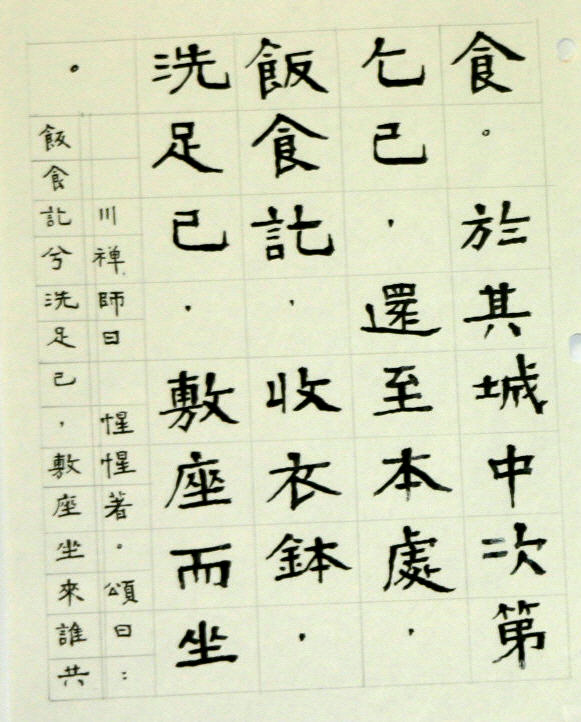 食。於其城中次第
乞已，還至本處，
飯食訖，收衣鉢，
洗足已，敷座而坐
。
川禅師曰 惺惺著。頌曰：
飯食訖兮洗足已，敷座坐來誰共